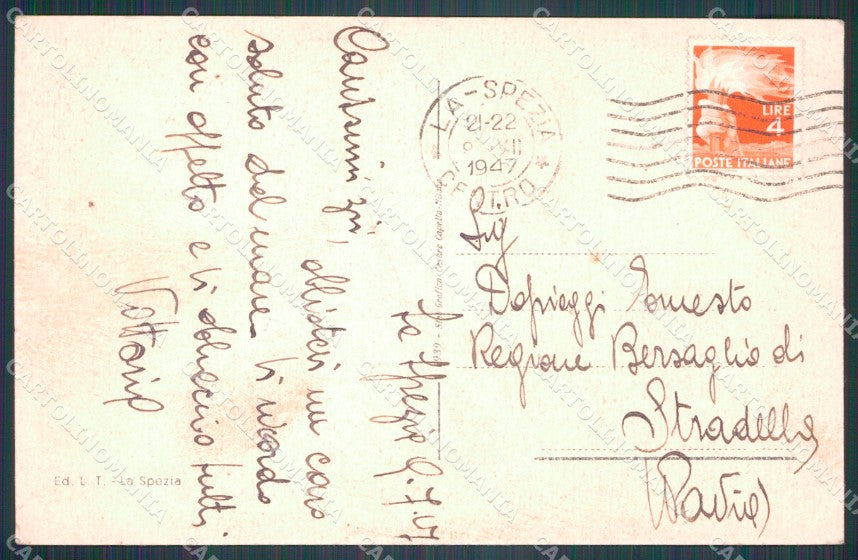 La Spezia 9.7.47
Carissimi zii, abbiatevi un caro
saluto dal mare. Vi ricordo
con affetto e vi abbraccio tutti.
Vittorio
LA - SPEZIA
21-22
XII
1947
CENTRO
LIRE
4
POSTE ITALIANE
Sig
Ernesto
Regione Bersaglio di
Stradella
(Pavia)
Ed. L. T. - La Spezia
CARTOLINOMANIA